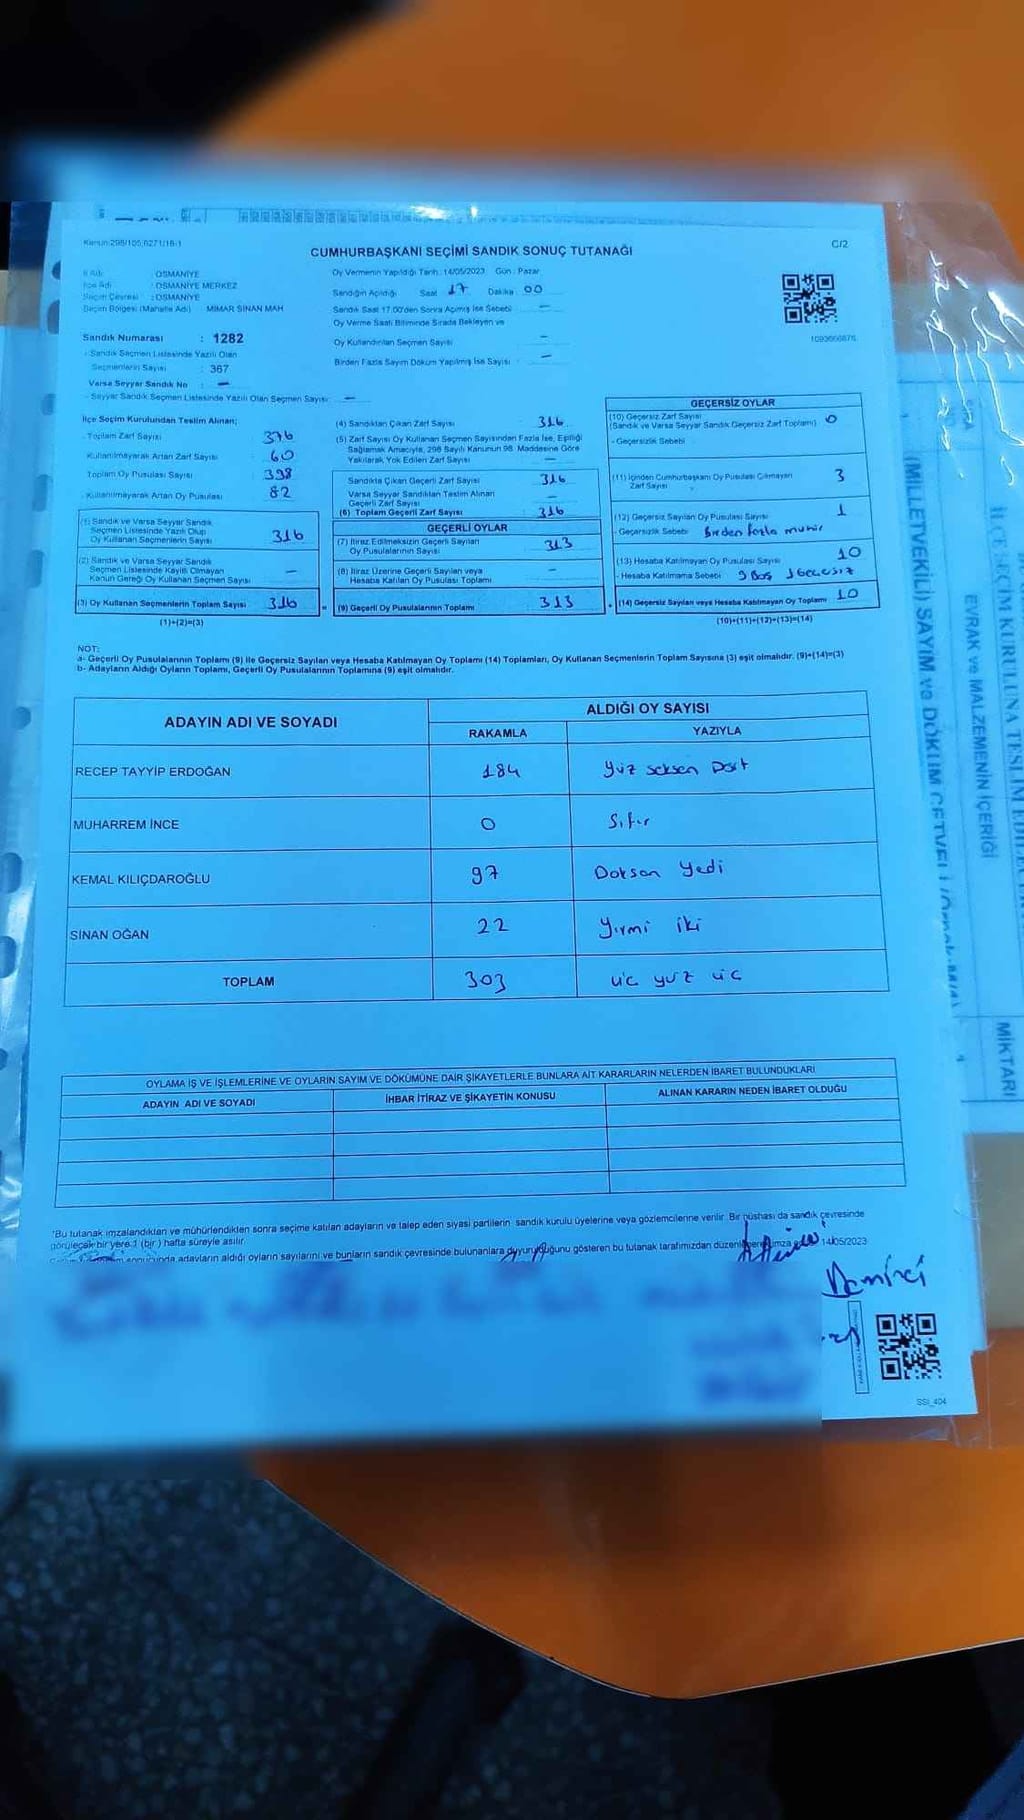 Kanun:298/105,6271/18-1
C/2
CUMHURBAŞKANI SEÇİMİ SANDIK SONUÇ TUTANAĞI
İl Adı : OSMANİYE
İlçe Adı : OSMANİYE MERKEZ
Seçim Çevresi : OSMANİYE
Seçim Bölgesi (Mahalle Adı) MİMAR SİNAN MAH
Sandık Numarası : 1282
- Sandık Seçmen Listesinde Yazılı Olan
Seçmenlerin Sayısı : 367
Varsa Seyyar Sandık No : –
- Seyyar Sandık Seçmen Listesinde Yazılı Olan Seçmen Sayısı: –
Oy Vermenin Yapıldığı Tarih: 14/05/2023 Gün : Pazar
Sandığın Açıldığı Saat 17 Dakika 00
Sandık Saat 17.00'den Sonra Açılmış İse Sebebi –
Oy Verme Saati Bitiminde Sırada Bekleyen ve
Oy Kullandırılan Seçmen Sayısı –
Birden Fazla Sayım Döküm Yapılmış İse Sayısı : –
1093666876
İlçe Seçim Kurulundan Teslim Alınan;
- Toplam Zarf Sayısı 376
- Kullanılmayarak Artan Zarf Sayısı 60
- Toplam Oy Pusulası Sayısı 398
- Kullanılmayarak Artan Oy Pusulası 82
(1) Sandık ve Varsa Seyyar Sandık
Seçmen Listesinde Yazılı Olup
Oy Kullanan Seçmenlerin Sayısı 316
(2) Sandık ve Varsa Seyyar Sandık
Seçmen Listesinde Kayıtlı Olmayan
Kanun Gereği Oy Kullanan Seçmen Sayısı –
(3) Oy Kullanan Seçmenlerin Toplam Sayısı 316
(1)+(2)=(3)
(4) Sandıktan Çıkan Zarf Sayısı 316
(5) Zarf Sayısı Oy Kullanan Seçmen Sayısından Fazla İse, Eşitliği
Sağlamak Amacıyla, 298 Sayılı Kanunun 98. Maddesine Göre
Yakılarak Yok Edilen Zarf Sayısı –
Sandıkta Çıkan Geçerli Zarf Sayısı 316
Varsa Seyyar Sandıktan Teslim Alınan
Geçerli Zarf Sayısı –
(6) Toplam Geçerli Zarf Sayısı 316
GEÇERLİ OYLAR
(7) İtiraz Edilmeksizin Geçerli Sayılan
Oy Pusulalarının Sayısı 313
(8) İtiraz Üzerine Geçerli Sayılan veya
Hesaba Katılan Oy Pusulası Toplamı –
= (9) Geçerli Oy Pusulalarının Toplamı 313
GEÇERSİZ OYLAR
(10) Geçersiz Zarf Sayısı
(Sandık ve Varsa Seyyar Sandık Geçersiz Zarf Toplamı) 0
- Geçersizlik Sebebi
(11) İçinden Cumhurbaşkanı Oy Pusulası Çıkmayan
Zarf Sayısı 3
(12) Geçersiz Sayılan Oy Pusulası Sayısı 1
- Geçersizlik Sebebi Birden fazla muhir
(13) Hesaba Katılmayan Oy Pusulası Sayısı 10
- Hesaba Katılmama Sebebi 9 Boş 1 Geçersiz
+ (14) Geçersiz Sayılan veya Hesaba Katılmayan Oy Toplamı 10
(10)+(11)+(12)+(13)=(14)
NOT:
a- Geçerli Oy Pusulalarının Toplamı (9) ile Geçersiz Sayılan veya Hesaba Katılmayan Oy Toplamı (14) Toplamları, Oy Kullanan Seçmenlerin Toplam Sayısına (3) eşit olmalıdır. (9)+(14)=(3)
b- Adayların Aldığı Oyların Toplamı, Geçerli Oy Pusulalarının Toplamına (9) eşit olmalıdır.
ADAYIN ADI VE SOYADI
ALDIĞI OY SAYISI
RAKAMLA YAZIYLA
RECEP TAYYİP ERDOĞAN 184 Yüz seksen Dört
MUHARREM İNCE 0 Sıfır
KEMAL KILIÇDAROĞLU 97 Doksan Yedi
SİNAN OĞAN 22 Yirmi iki
TOPLAM 303 üç yüz üç
OYLAMA İŞ VE İŞLEMLERİNE VE OYLARIN SAYIM VE DÖKÜMÜNE DAİR ŞİKAYETLERLE BUNLARA AİT KARARLARIN NELERDEN İBARET BULUNDUKLARI
ADAYIN ADI VE SOYADI İHBAR İTİRAZ VE ŞİKAYETİN KONUSU ALINAN KARARIN NEDEN İBARET OLDUĞU
*Bu tutanak imzalandıktan ve mühürlendikten sonra seçime katılan adayların ve talep eden siyasi partilerin sandık kurulu üyelerine veya gözlemcilerine verilir. Bir nüshası da sandık çevresinde
görülecek bir yere 1 (bir) hafta süreyle asılır.
sonucunda adayların aldığı oyların sayılarını ve bunların sandık çevresinde bulunanlara duyurulduğunu gösteren bu tutanak tarafımızdan 14/05/2023
Demirci
SSI_404
(MİLLETVEKİLİ) SAYIM ve DÖKÜM CETVELİ
EVRAK ve MALZEMENİN İÇERİĞİ
İLÇE SEÇİM KURULUNA TESLİM
MİKTARI